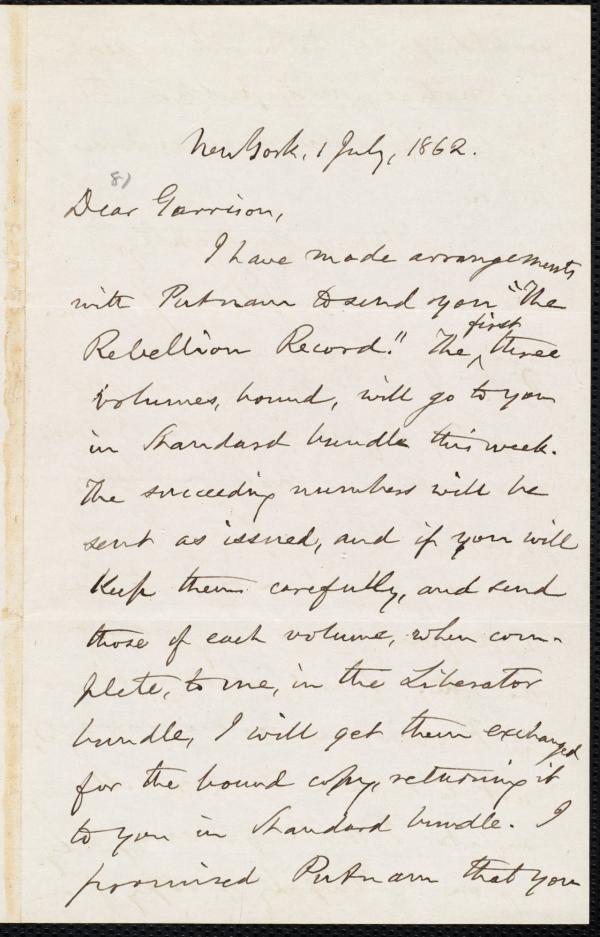 New York, 1 July, 1862.
81
Dear Garrison,
I have made arrangements
with Putnam to send you "The
Rebellion Record." The first three
volumes, bound, will go to you
in Standard bundle this week.
The succeeding numbers will be
sent as issued, and if you will
keep them carefully, and send
those of each volume, when com-
plete, to me, in the Liberator
bundle, I will get them exchanged
for the bound copy, returning it
to you in Standard bundle. I
promised Putnam that you